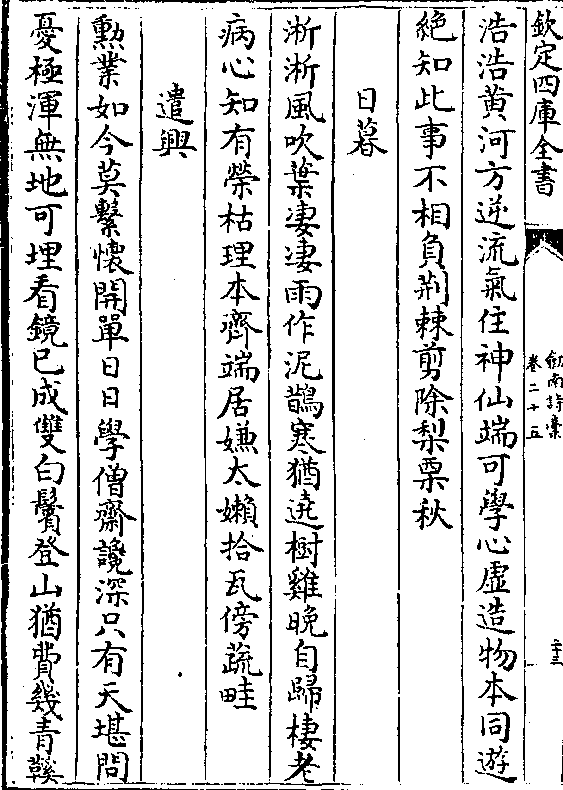 欽定四庫全書
劍南詩稾
卷二十五
二十三
浩浩黄河方逆流氣住神仙端可學心虚造物本同遊
絶知此事不相負荆棘剪除梨栗秋
日暮
淅淅風吹葉凄凄雨作泥鵲寒猶遶樹雞晚自歸棲老
病心知有榮枯理本齊端居嫌太嬾拾瓦傍蔬畦
遣興
勲業如今莫繫懷開單日日學僧齋讒深只有天堪問
憂極渾無地可埋看鏡已成雙白鬢登山猶費幾青鞵